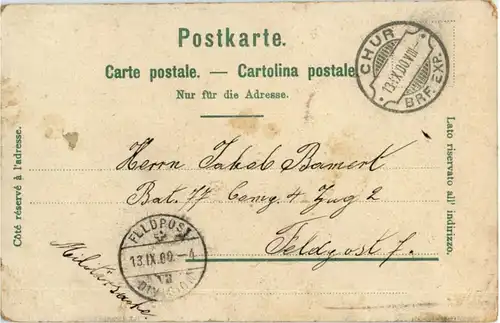 Postkarte.
Carte postale. — Cartolina postale.
Nur für die Adresse.
Côté réservé à l'adresse.
Lato riservato all' indirizzo.
CHUR
13.IX.00.VIII-
BRF. EXP.
Herrn Jakob Bamert
Bat. 77 Comp. 4 Zug 2
Feldpost 7.
FELDPOST
13.IX.00.-4
VII
DIVISION
Militärsache.